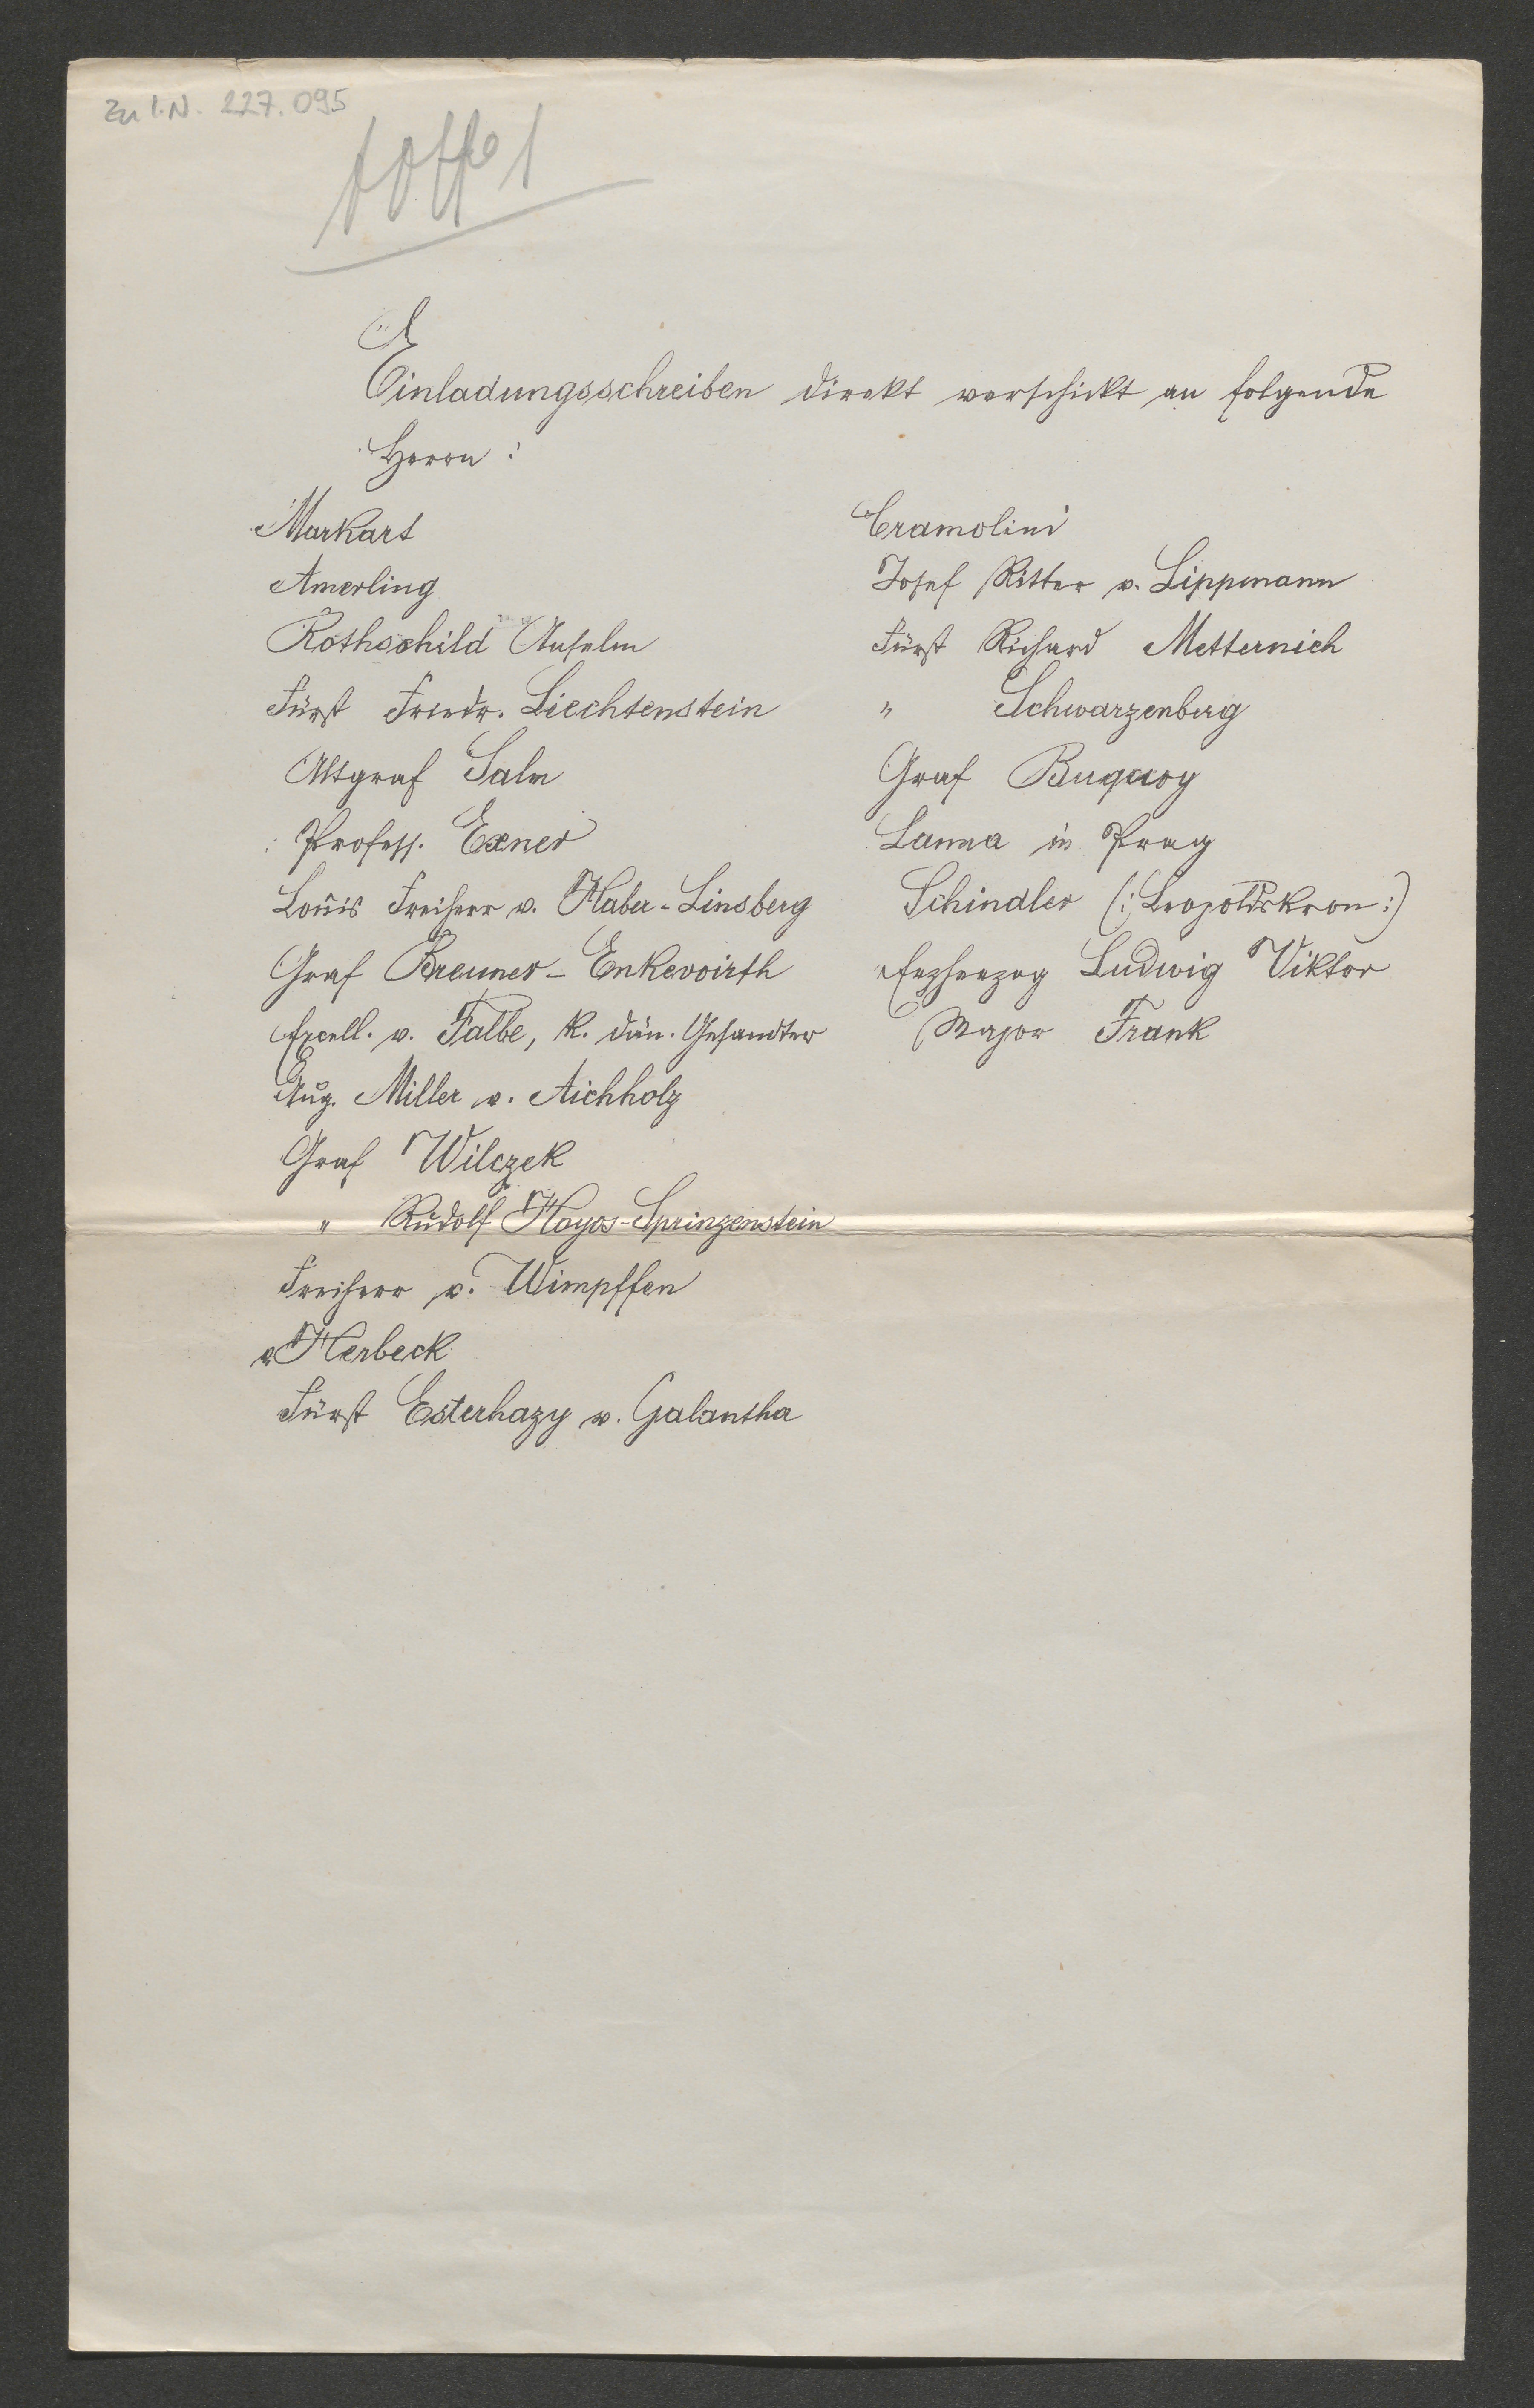 Zu I.N. 227.095
Einladungsschreiben direkt verschickt an folgende
Herrn:
Markart
Amerling
Rothschild Anselm
Fürst Friedr. Liechtenstein
Altgraf Salm
Profess. Exner
Louis Freiherr v. Haber-Linsberg
Graf Breuner-Enkevoirth
Excell. v. Falbe, k. dän. Gesandter
Aug. Miller v. Aichholz
Graf Wilczek
" Rudolf Hoyos-Sprinzenstein
Freiherr v. Wimpffen
Herbeck
Fürst Esterhazy v. Galantha
Cramolini
Josef Ritter v. Lippmann
Fürst Richard Metternich
" Schwarzenberg
Graf Buquoy
Lanna in Prag
Schindler (: Leopoldskron :)
Erzherzog Ludwig Viktor
Major Frank